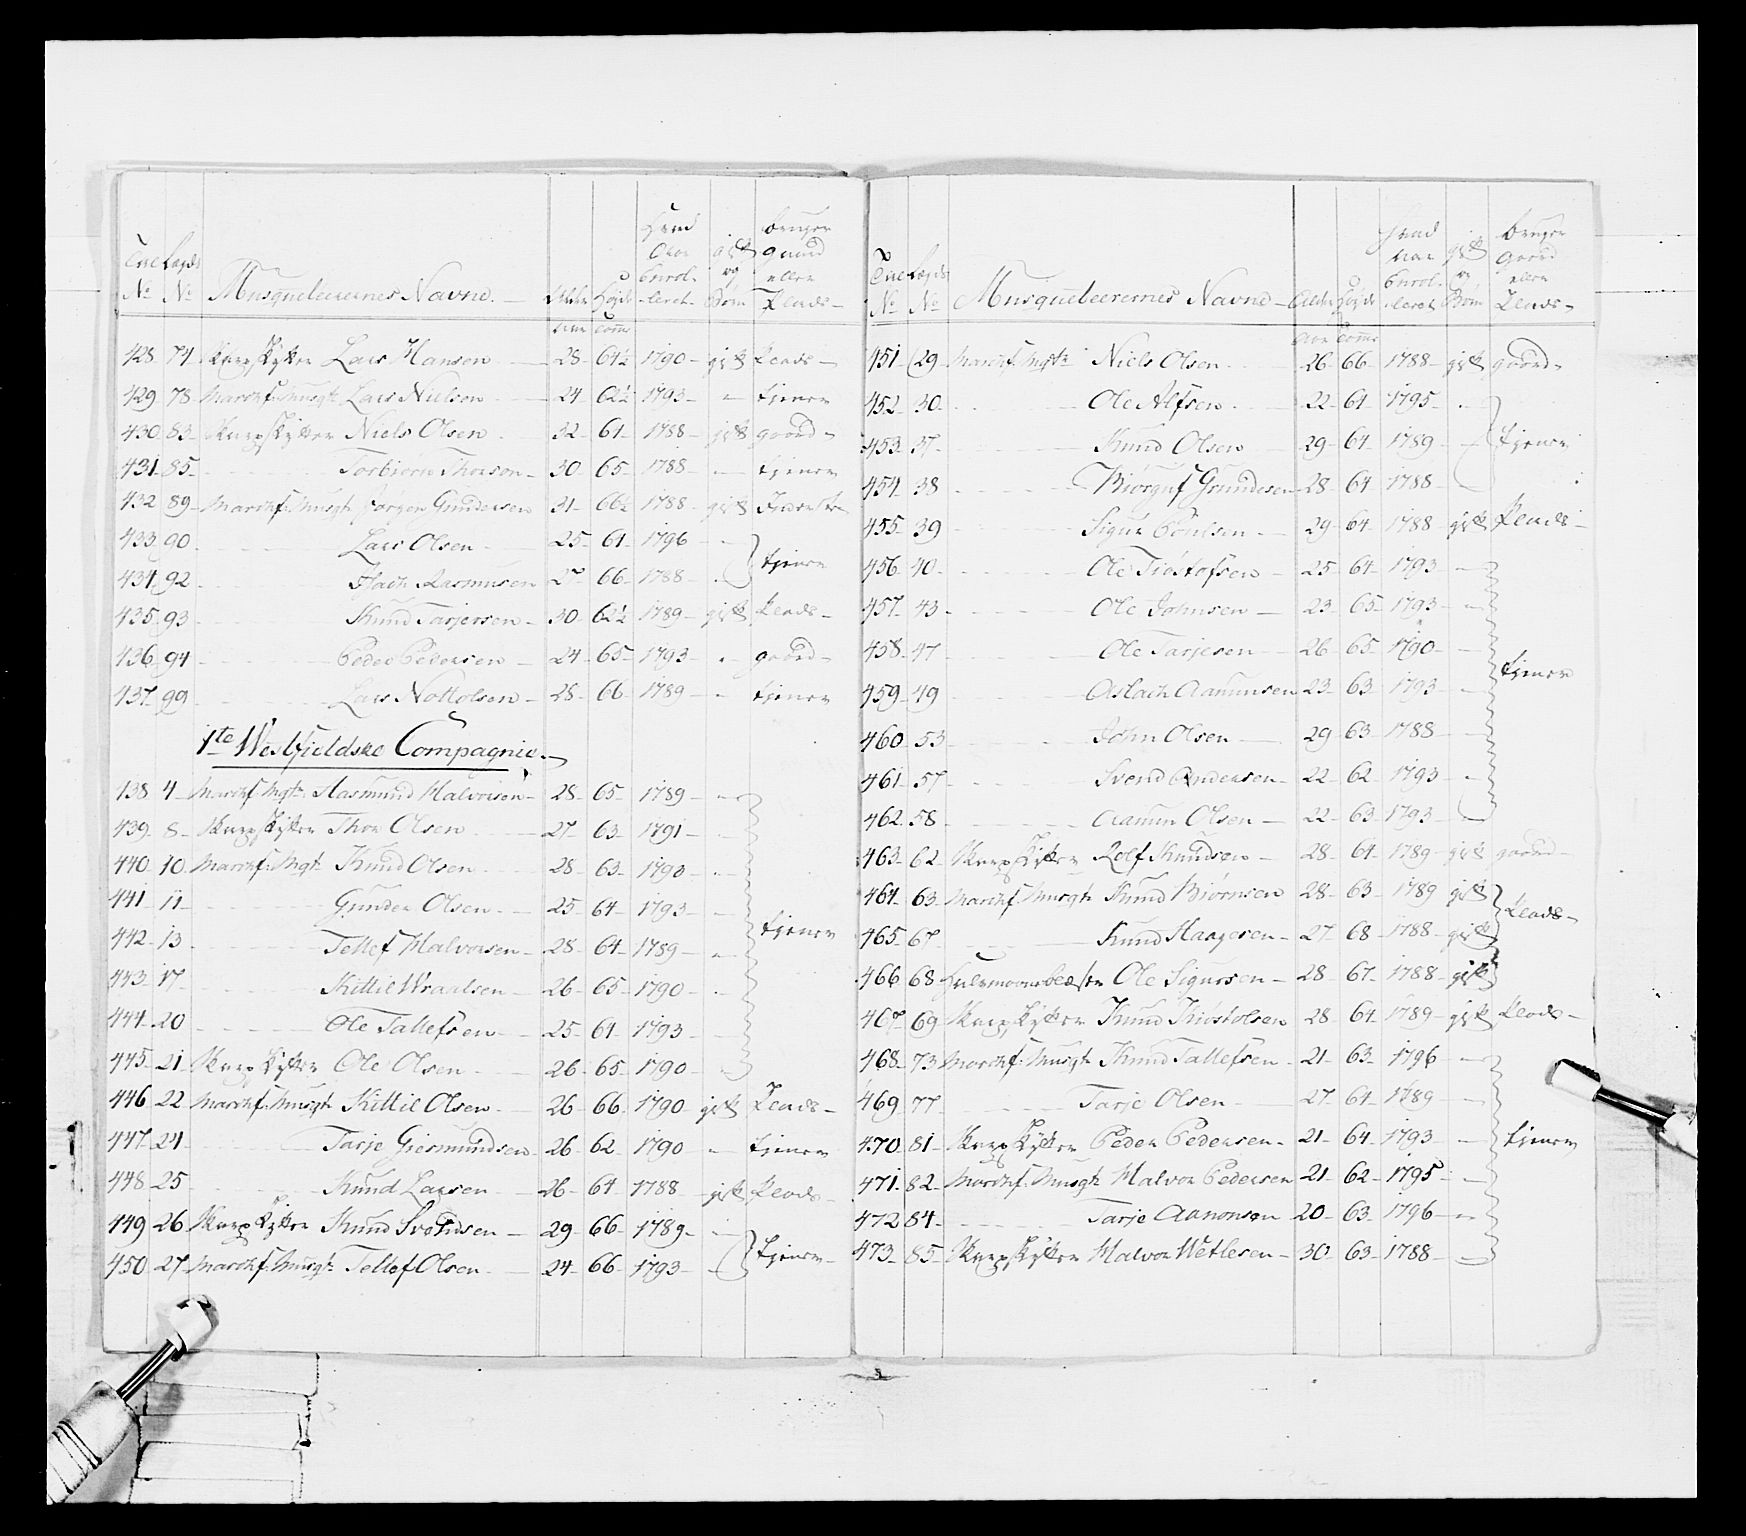 Musqueteerernes Navne
Hvad Aar Enrolleret
gift og Børn
bruger gaard eller Plads
Alder
Høyde
Aar Tomr
428 74 Skarpskytter Lars Hansen 28 64½ 1790 gift Plads
429 78 Marchf: Musqt: Lars Nielsen 24 62½ 1793 - tjener
430 83 Skarpskytter Niels Olsen 32 61 1788 gift gaard
431 85 - Torbiørn Thorson 30 65 1788 - tjener
432 89 Marchf: Musqt: Jørgen Gundersen 31 66½ 1788 gift
433 90 - Lars Olsen 25 61 1796 -
434 92 - Isach Rasmusen 27 66 1788 - tjener
435 93 - Knud Tarjersen 30 62½ 1789 gift Plads
436 94 - Peder Pedersen 24 65 1793 - gaard
437 99 - Lars Nottolsen 28 66 1789 - tjener
1te Westfieldske Compagnie
438 4 Marchf: Mqt: Aasmund Halvorsen 28 65 1789 -
439 8 Skarpskytter Thor Olsen 27 63 1791 -
440 10 Marchf: Mqt: Knud Olsen 28 63 1793 -
441 11 - Gunder Olsen 25 64 1793 -
442 13 - Tellef Halvorsen 28 64 1789 - tjener
443 17 - Kittil Wraalsen 26 65 1790 -
444 20 - Ole Tallefsen 25 61 1793
445 21 Skarpskytter Ole Olsen 26 65 1790 -
446 22 Marchf: Musqt: Kittil Olsen 26 66 1790 gift Plads
447 24 - Tarje Giermundsen 26 62 1790 - tjener
448 25 - Knud Larsen 26 64 1788 gift Plads
449 26 Skarpskytter Knud 29 66 1789 -
450 27 Marchf: Musqt: Tellef Olsen 24 66 1793 - tjener
Musqueteerernes Navne
Alder
Høyde
Hvad Aar Enrolleret
gift og Børn
bruger Gaard eller Plads
Aar Tomr
451 29 Marchf: Musqt: Niels Olsen 26 66 1788 gift gaard
452 30 - Ole Alfsen 22 61 1795 -
453 37 - Knud Olsen 29 64 1789 - tjener
454 38 - Biørguf Grundesen 28 64 1788 -
455 39 - Sigur Poulsen 29 64 1788 gift Plads
456 40 - Ole Tiøstofsen 25 64 1793 -
457 43 - Ole Johnsen 23 65 1793 -
458 47 - Ole Tarjesen 26 65 1790 -
459 49 - Aslach Aamunsen 23 63 1793 - tjener
460 53 - John Olsen 29 63 1788 -
461 57 - Svend Andersen 22 62 1793 -
462 58 - Aamun Olsen 22 63 1793 -
463 62 Skarpskytter Rolf Knudsen 28 61 1789 gift gaard
464 63 Marchf: Musqt: Knud Biørnsen 28 63 1789 gift
465 67 - Knud Haagesen 27 68 1788 gift Plads
466 68 Hulvmoonsblæser Ole Sigursen 28 67 1788 gift
467 69 Skarpskytter Knud Kiøstolsen 28 64 1789 gift Plads
468 73 Marchf: Musqt: Knud Tallefsen 21 63 1796 -
469 77 - Tarje Olsen 27 64 1789 -
470 81 Skarpskytter Peder Pedersen 21 64 1793 - tjener
471 82 Marchf: Musqt: Halvor Pedersen 21 62 1795 -
472 84 - Tarje Aanonsen 20 63 1796 -
473 85 Skarpskytter Halvor Wetlesen 30 63 1788 -